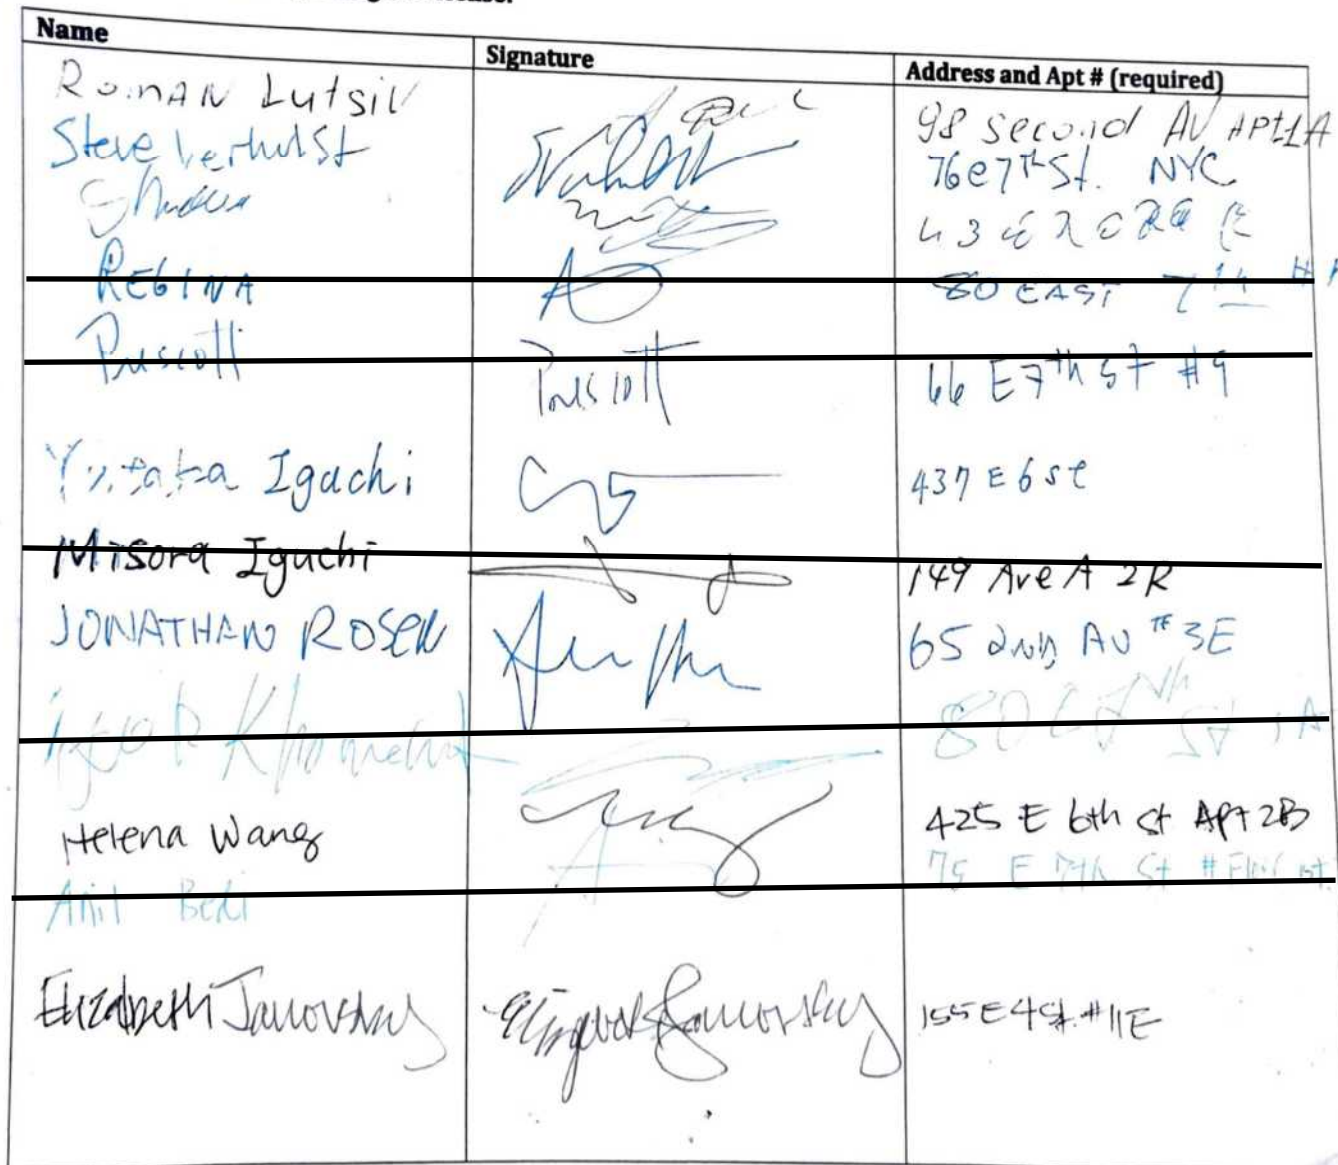 Name Signature Address and Apt # (required)
Roman Lutsiv 98 Second AV APT1A
Steve Verhulst 76 e 7th St. NYC
REGINA 80 EAST 7th
Prescott Prescott 66 E 7th St #9
Yutaka Iguchi 437 E 6 st
Misora Iguchi 149 Ave A 2R
JONATHAN ROSEN 65 2ND AV #3E
Igor 80 E 7th St 1A
Helena Wang 425 E 6th St Apt 2B
Anil Bedi 75 E 7th St
Elizabeth Janovsky Elizabeth Janovsky 155 E 4 St. #11E